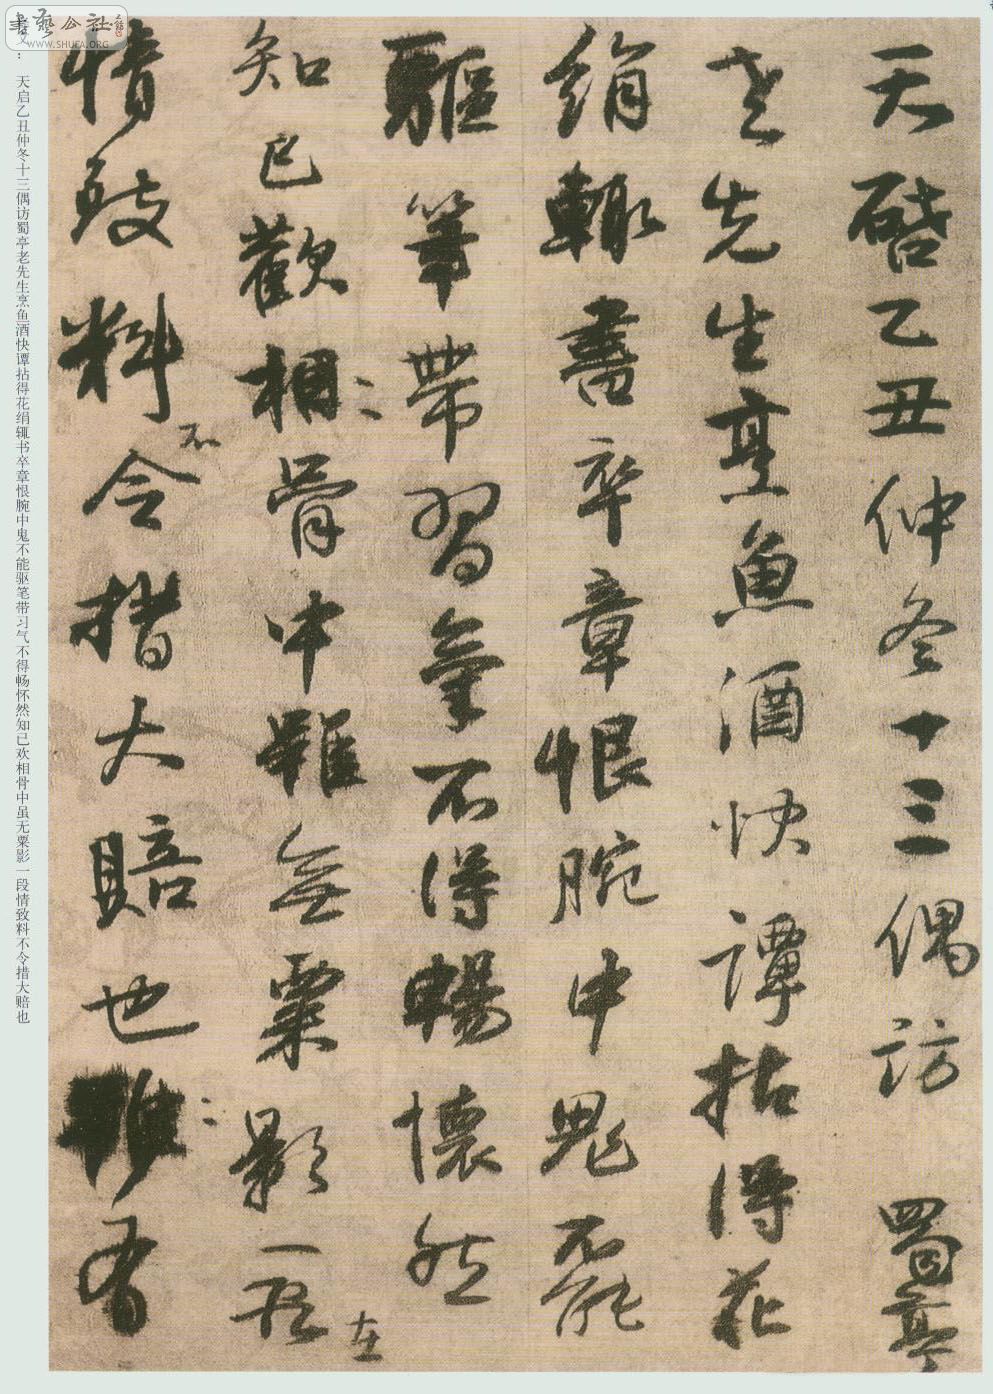 天啓乙丑仲冬十三偶訪蜀亭
老先生烹魚酒快譚拈得花
絹輒書卒章恨腕中鬼不能
驅筆帶習氣不得暢懷然
知已歡相骨中雖無粟影一段在
情致料不令措大賠也 有
文：天启乙丑仲冬十三偶访蜀亭老先生烹鱼酒快谭拈得花绢辄书卒章恨腕中鬼不能驱笔带习气不得畅怀然知已欢相骨中虽无粟影一段情致料不令措大赔也
書藝公社
WWW.SHUFA.ORG